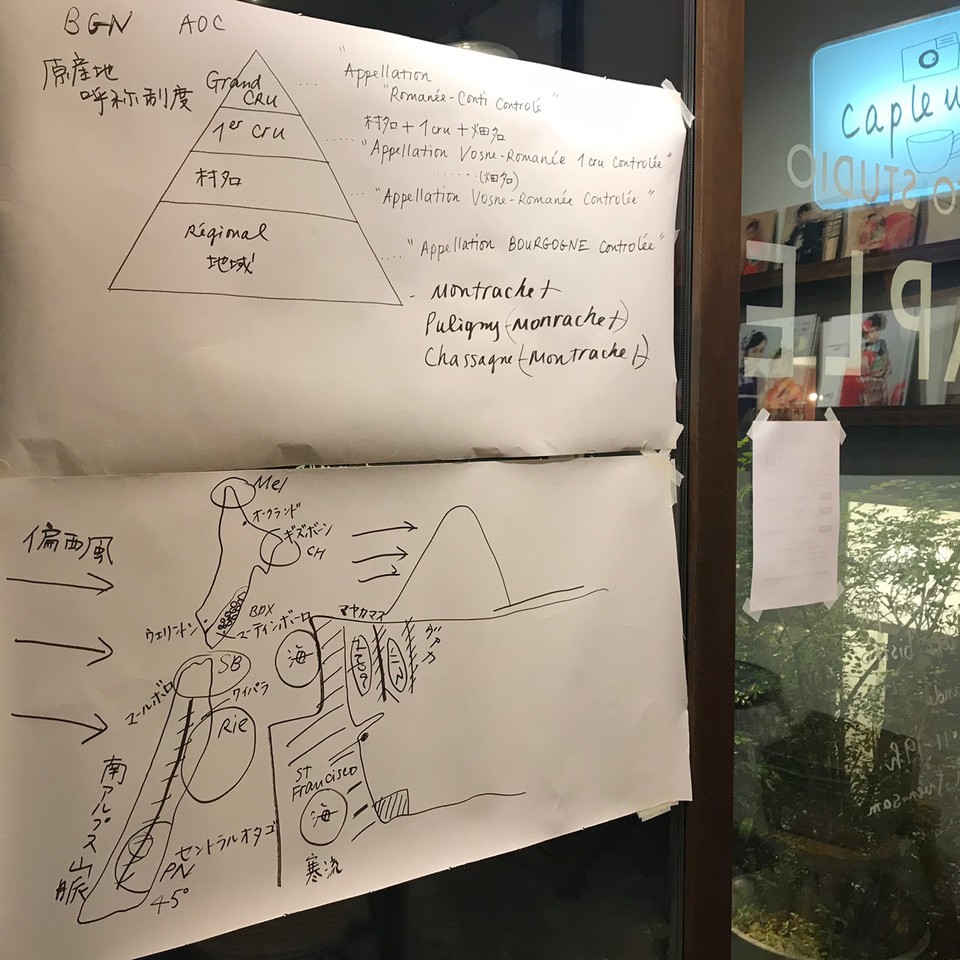 BGN AOC
原産地
呼称制度
Grand
CRU
1er Cru
村名
Régional
地域
"Appellation
"Romanée-Conti Controlé"
村名+1cru+畑名
"Appellation Vosne-Romanée 1cru Controlée"
(畑名)
"Appellation Vosne-Romanée Controlée"
"Appellation BOURGOGNE Controlée"
Montrachet
Puligny(-Monrachet)
Chassagne(-Montrachet)
偏西風
Mel
オークランド
ギズボーン
CH
BDX
マーティンボーロ
ウェリントン
SB
マールボロ
ワイパラ
Rie
南アルプス山脈
セントラルオタゴ
PN
45°
マヤカマス
海
ソノマ
ナパ
ヴァカ
St
Francisco
海
寒流
caple
STUDIO